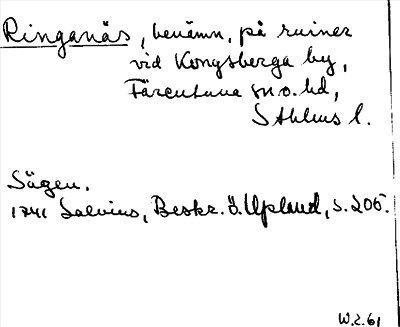 Ringanäs, benämn. på ruiner
vid Kongsberga by,
Färentuna sn o. hd,
Sthlms l.
Sägen.
1741 Salvius, Beskr. ö. Upland, s. 206.
W.Z.61